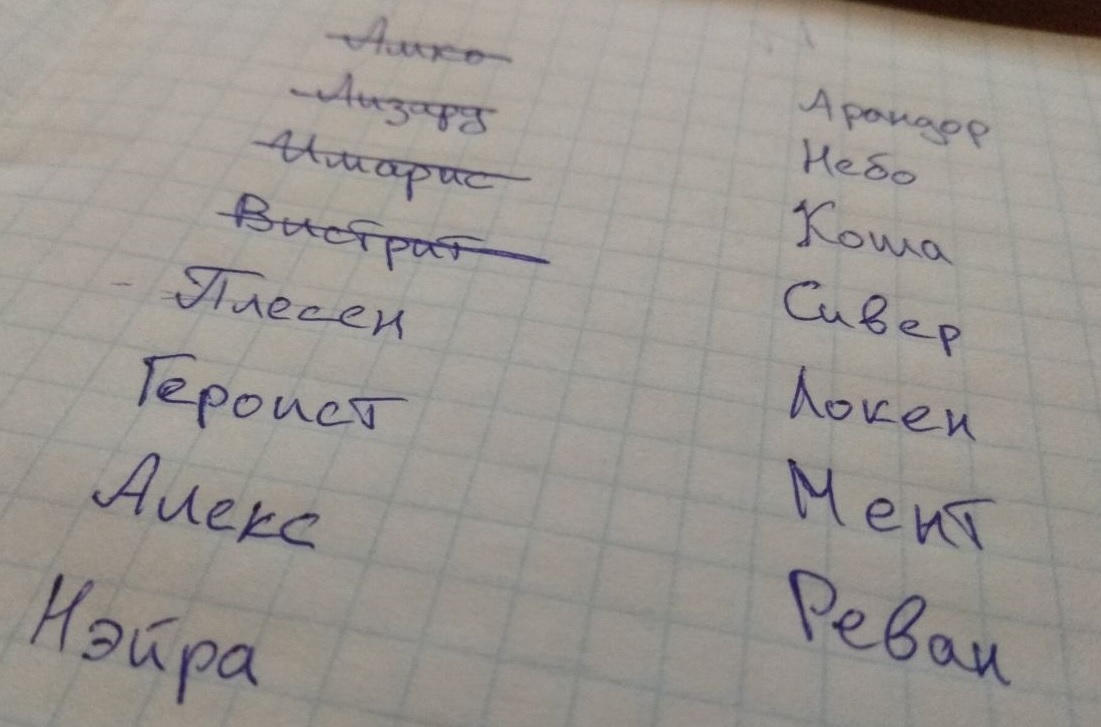 Амко
Лизард
Имарис
Вистрит
Плесен
Героист
Алекс
Нэйра
Арандор
Небо
Коша
Сивер
Локен
Мент
Реван